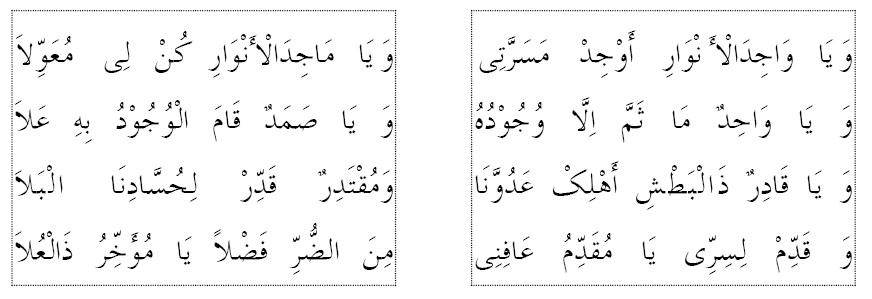 وَ يَا وَاجِدَالْأَنْوَارِ أَوْجِدْ مَسَرَّتِى وَ يَا مَاجِدَالْأَنْوَارِ كُنْ لِى مُعَوِّلاَ
وَ يَا وَاحِدٌ مَا ثَمَّ اِلَّا وُجُوْدُهُ وَ يَا صَمَدٌ قَامَ الْوُجُوْدُ بِهِ عَلاَ
وَ يَا قَادِرٌ ذَالْبَطْشِ أَهْلِكْ عَدُوَّنَا وَمُقْتَدِرٌ قَدِّرْ لِحُسَّادِنَا الْبَلاَ
وَ قَدِّمْ لِسِرِّى يَا مُقَدِّمُ عَافِنِى مِنَ الضُّرِّ فَضْلاً يَا مُؤَخِّرُ ذَالْعُلاَ